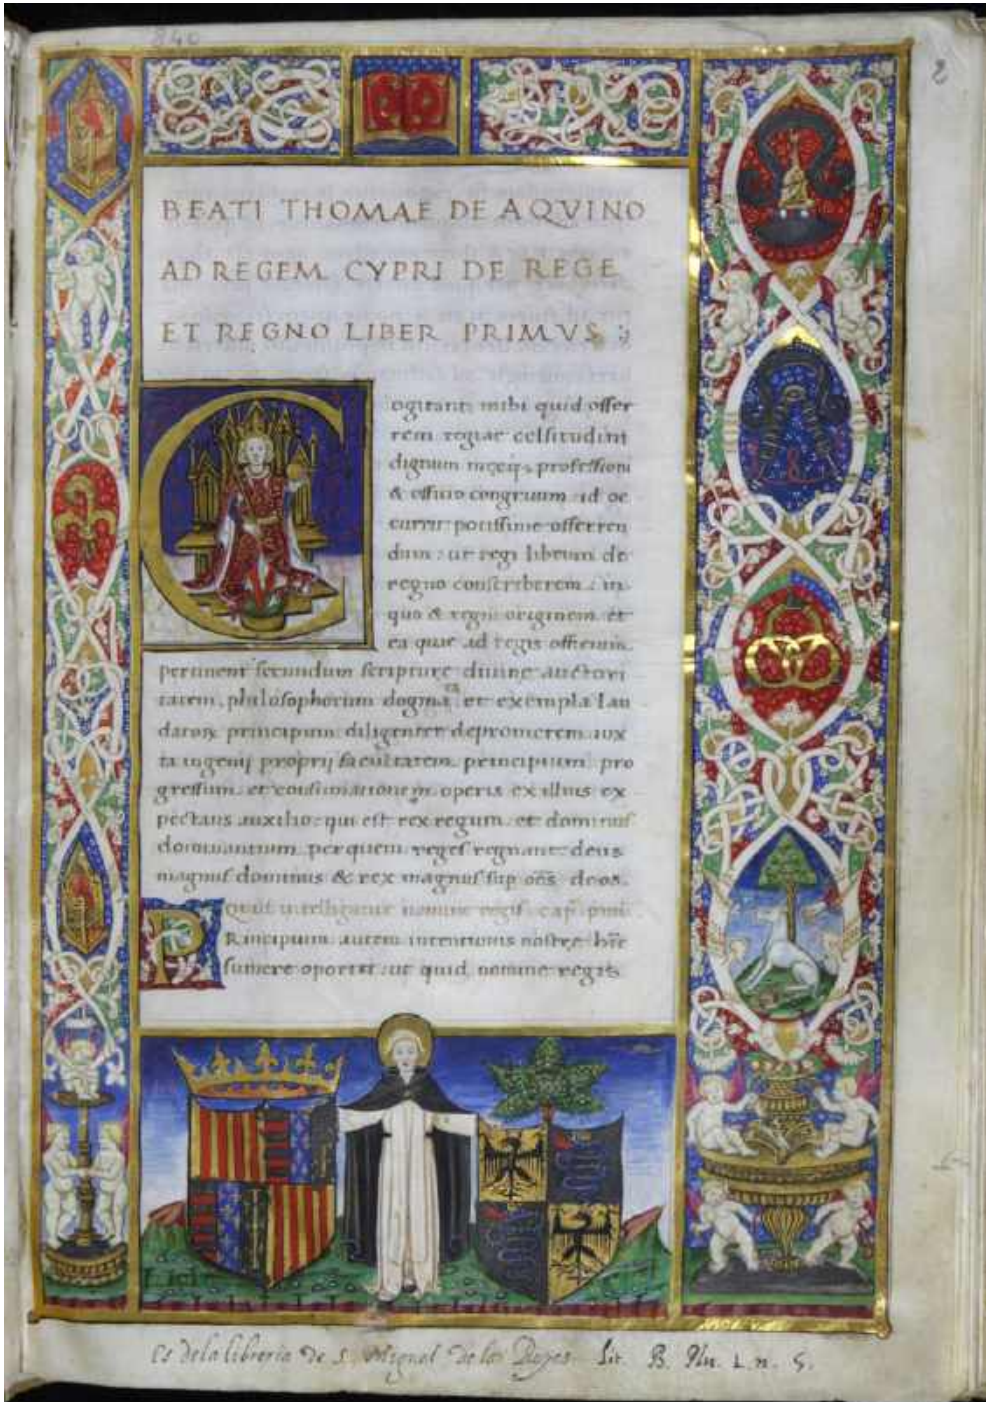 840
2
BEATI THOMAE DE AQVINO
AD REGEM CYPRI DE REGE
ET REGNO LIBER PRIMVS
Cogitanti mihi quid offer
rem regiae celsitudini
dignum meęq; professioni
& officio congruum id oc
currit potissime offeren
dum: ut regi librum de
regno conscriberem: in
quo & regni originem et
ea quae ad regis officium
pertinent secundum scripturę diuine auctori
tatem, philosophorum dogma et exempla lau
datorum principum diligenter depromerem iux
ta ingenij proprij facultatem principium pro
gressum et consumationem operis ex illius ex
pectans auxilio: qui est rex regum et dominus
dominantium per quem reges regnant: deus
magnus dominus & rex magnus sup oēs deos.
Quid intelligatur nomine regis cap pm
PRincipium autem intentionis nostrę hinc
sumere oportet: ut quid nomine regis
Es de la libreria de S. Miguel de los Reyes. Lit. B. Plu. L. n. 5.